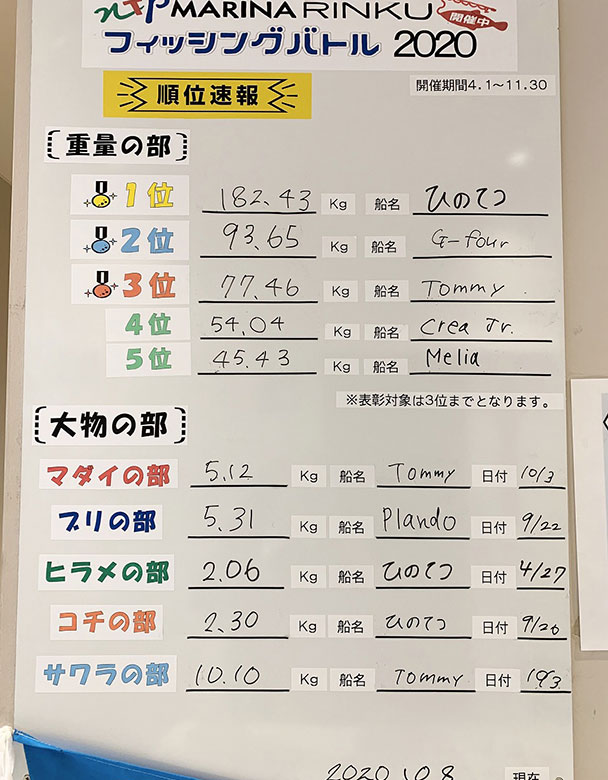 MARINA RINKU
開催中
フィッシングバトル 2020
順位速報
開催期間4.1～11.30
重量の部
1位 182.43 Kg 船名 ひのてつ
2位 93.65 Kg 船名 G-four
3位 77.46 Kg 船名 Tommy
4位 54.04 Kg 船名 Crea Jr.
5位 45.43 Kg 船名 Melia
※表彰対象は3位までとなります。
大物の部
マダイの部 5.12 Kg 船名 Tommy 日付 10/3
ブリの部 5.31 Kg 船名 Plando 日付 9/22
ヒラメの部 2.06 Kg 船名 ひのてつ 日付 4/27
コチの部 2.30 Kg 船名 ひのてつ 日付 9/20
サワラの部 10.10 Kg 船名 Tommy 日付 10/3
2020.10.8 現在